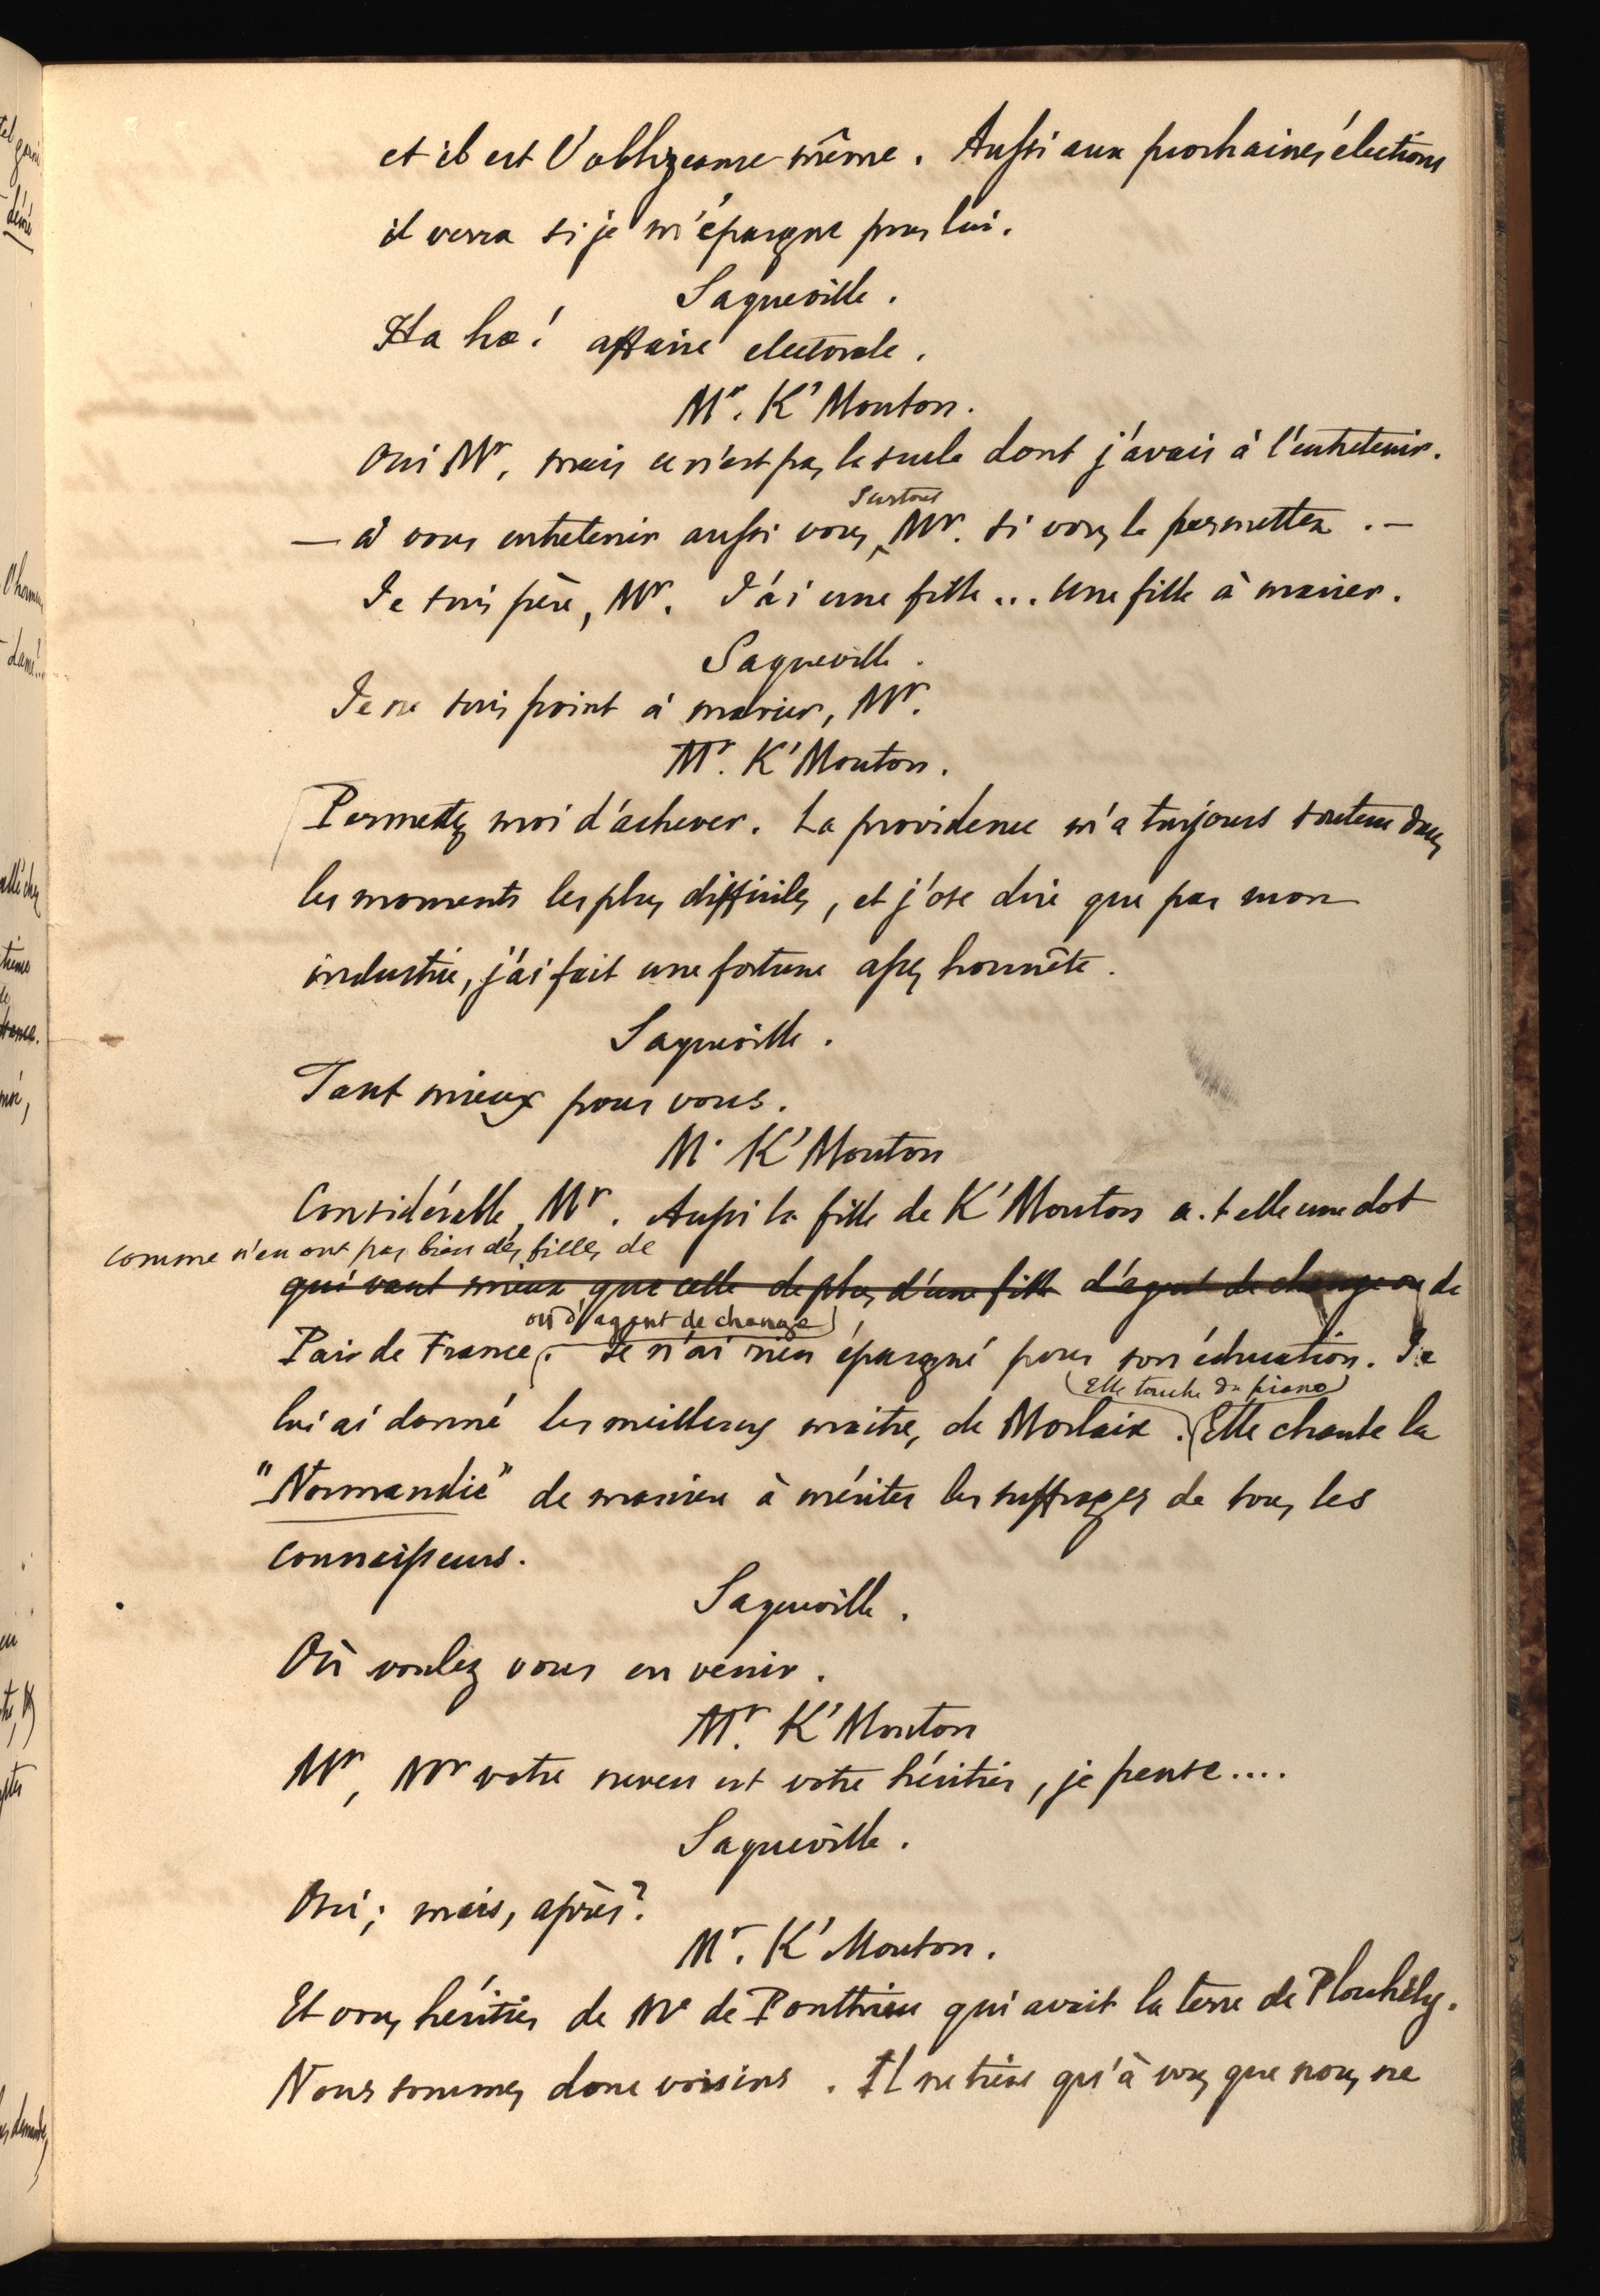 et il est l'obligeance même. Aussi aux prochaines élections
il verra si je m'épargne pour lui.
Saqueville.
Ha ha! affaire electorale.
Mr. K'Mouton.
Oui Mr, mais ce n'est pas la seule dont j'avais à l'entretenir.
surtout
— à vous entretenir aussi vous, Mr. si vous le permettez. —
Je suis père, Mr. J'ai une fille... une fille à marier.
Saqueville.
Je ne suis point à marier, Mr.
Mr. K'Mouton.
Permettez moi d'achever. La providence m'a toujours soutenu dans
les moments les plus difficiles, et j'ose dire que par mon
industrie, j'ai fait une fortune assez honnête.
Saqueville.
Tant mieux pour vous.
M. K'Mouton
Considérable, Mr. Aussi la fille de K'Mouton a-t elle une dot
comme n'en ont pas bien des filles de
qui vaut mieux que celle de plus d'une fille d'agent de change ou de
ou d'agent de change
Pair de France. Je n'ai rien épargné pour son éducation. Je
Elle touche du piano
lui ai donné les meilleurs maitres de Morlaix. Elle chante la
"Normandie" de manière à mériter les suffrages de tous les
connaisseurs.
Saqueville.
Où voulez vous en venir.
Mr. K'Mouton
Mr, Mr votre neveu est votre héritier, je pense....
Saqueville.
Oui; mais, après?
Mr. K'Mouton.
Et vous héritier de Mr de Ponthieu qui avait la terre de Plouhély.
Nous sommes donc voisins. Il ne tient qu'à vous que nous ne